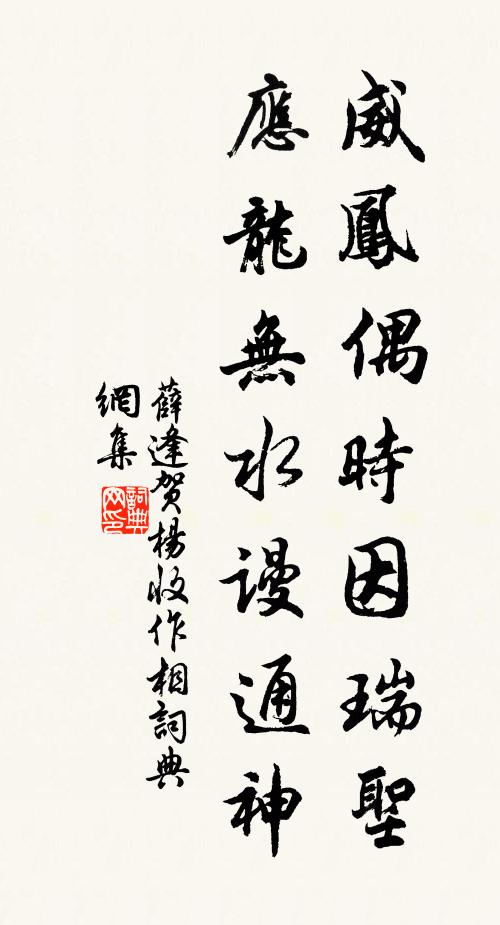 威鳳偶時因瑞聖
應龍無水謾通神
薛逢賀楊收作相詞典
網集
詞典
网印